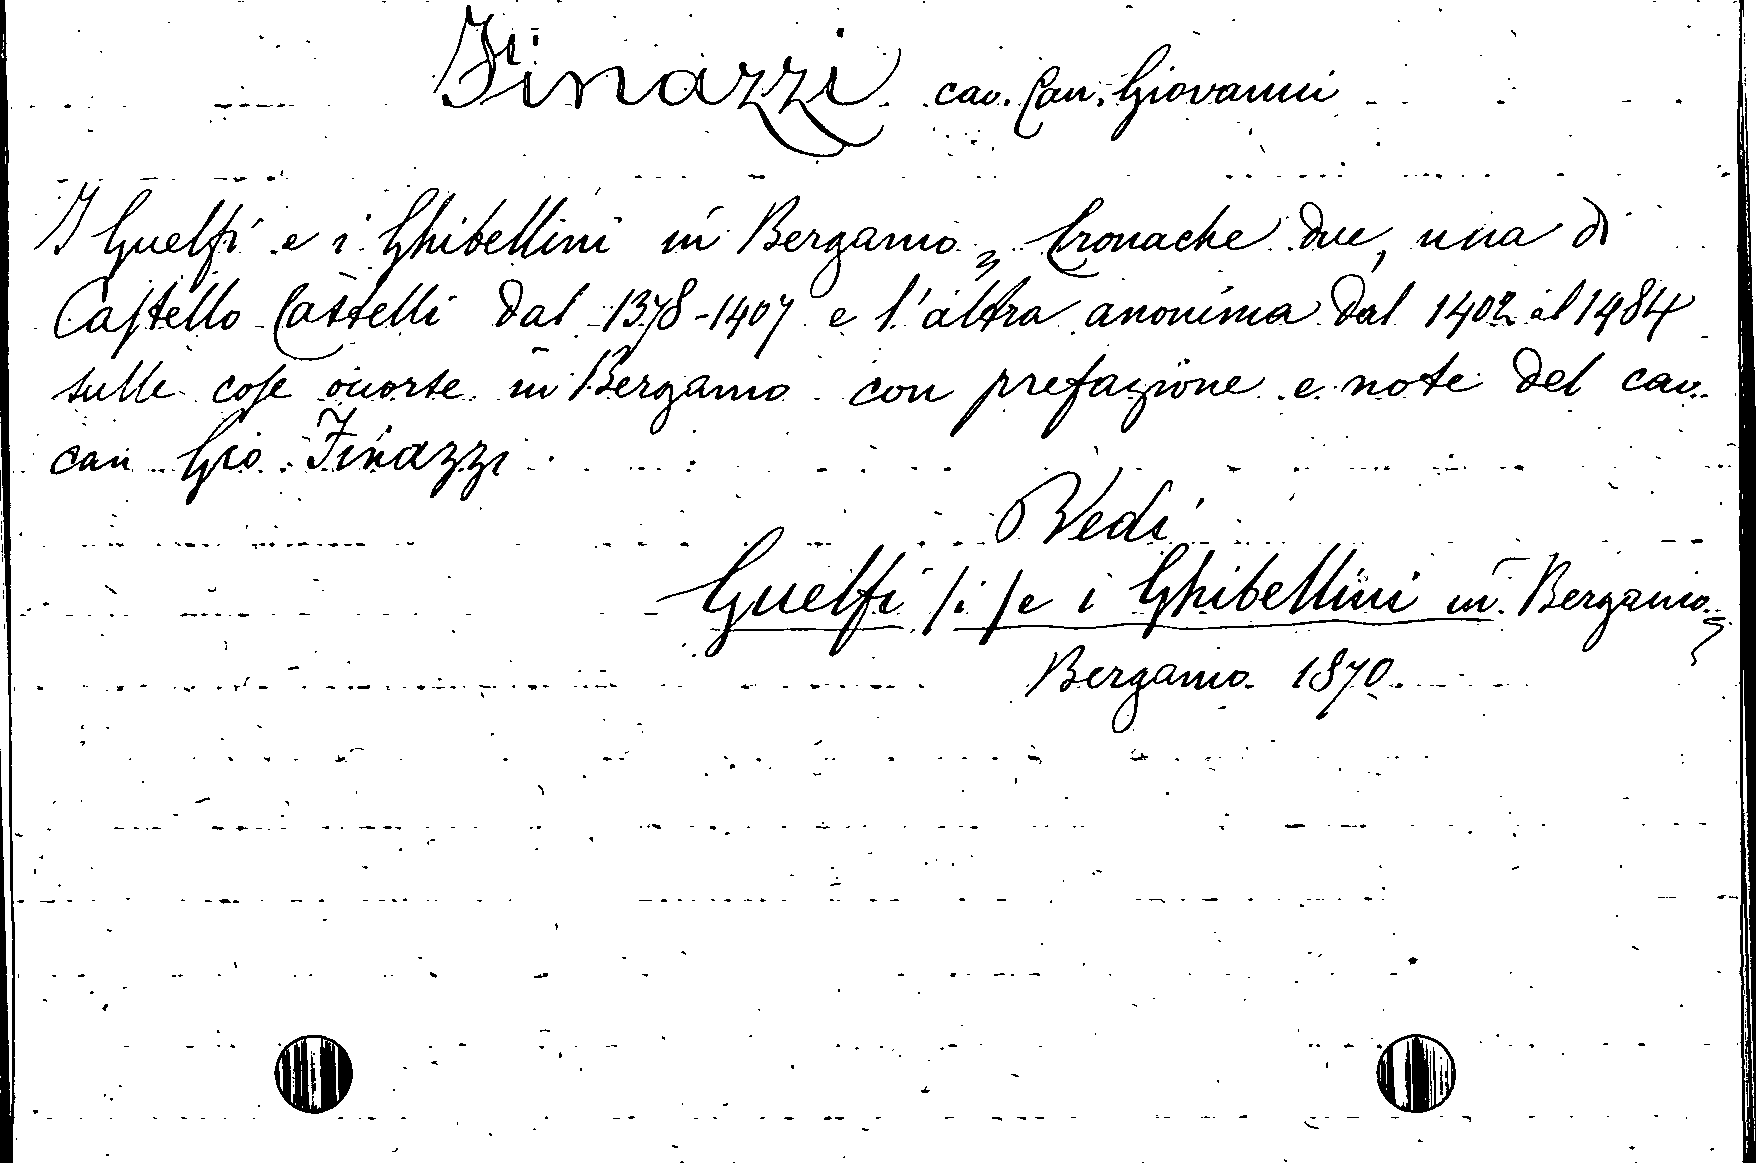 Finazzi cav. Can. Giovanni
I Guelfi e i Ghibellini in Bergamo, Cronache due, una di
Castello Castelli dal 1378-1407 e l'altra anonima dal 1402 al 1484
sulle cose in Bergamo con prefazione e note del cav.
can Gio. Finazzi
Vedi
Guelfi /i/ e i Ghibellini in Bergamo
Bergamo 1870.